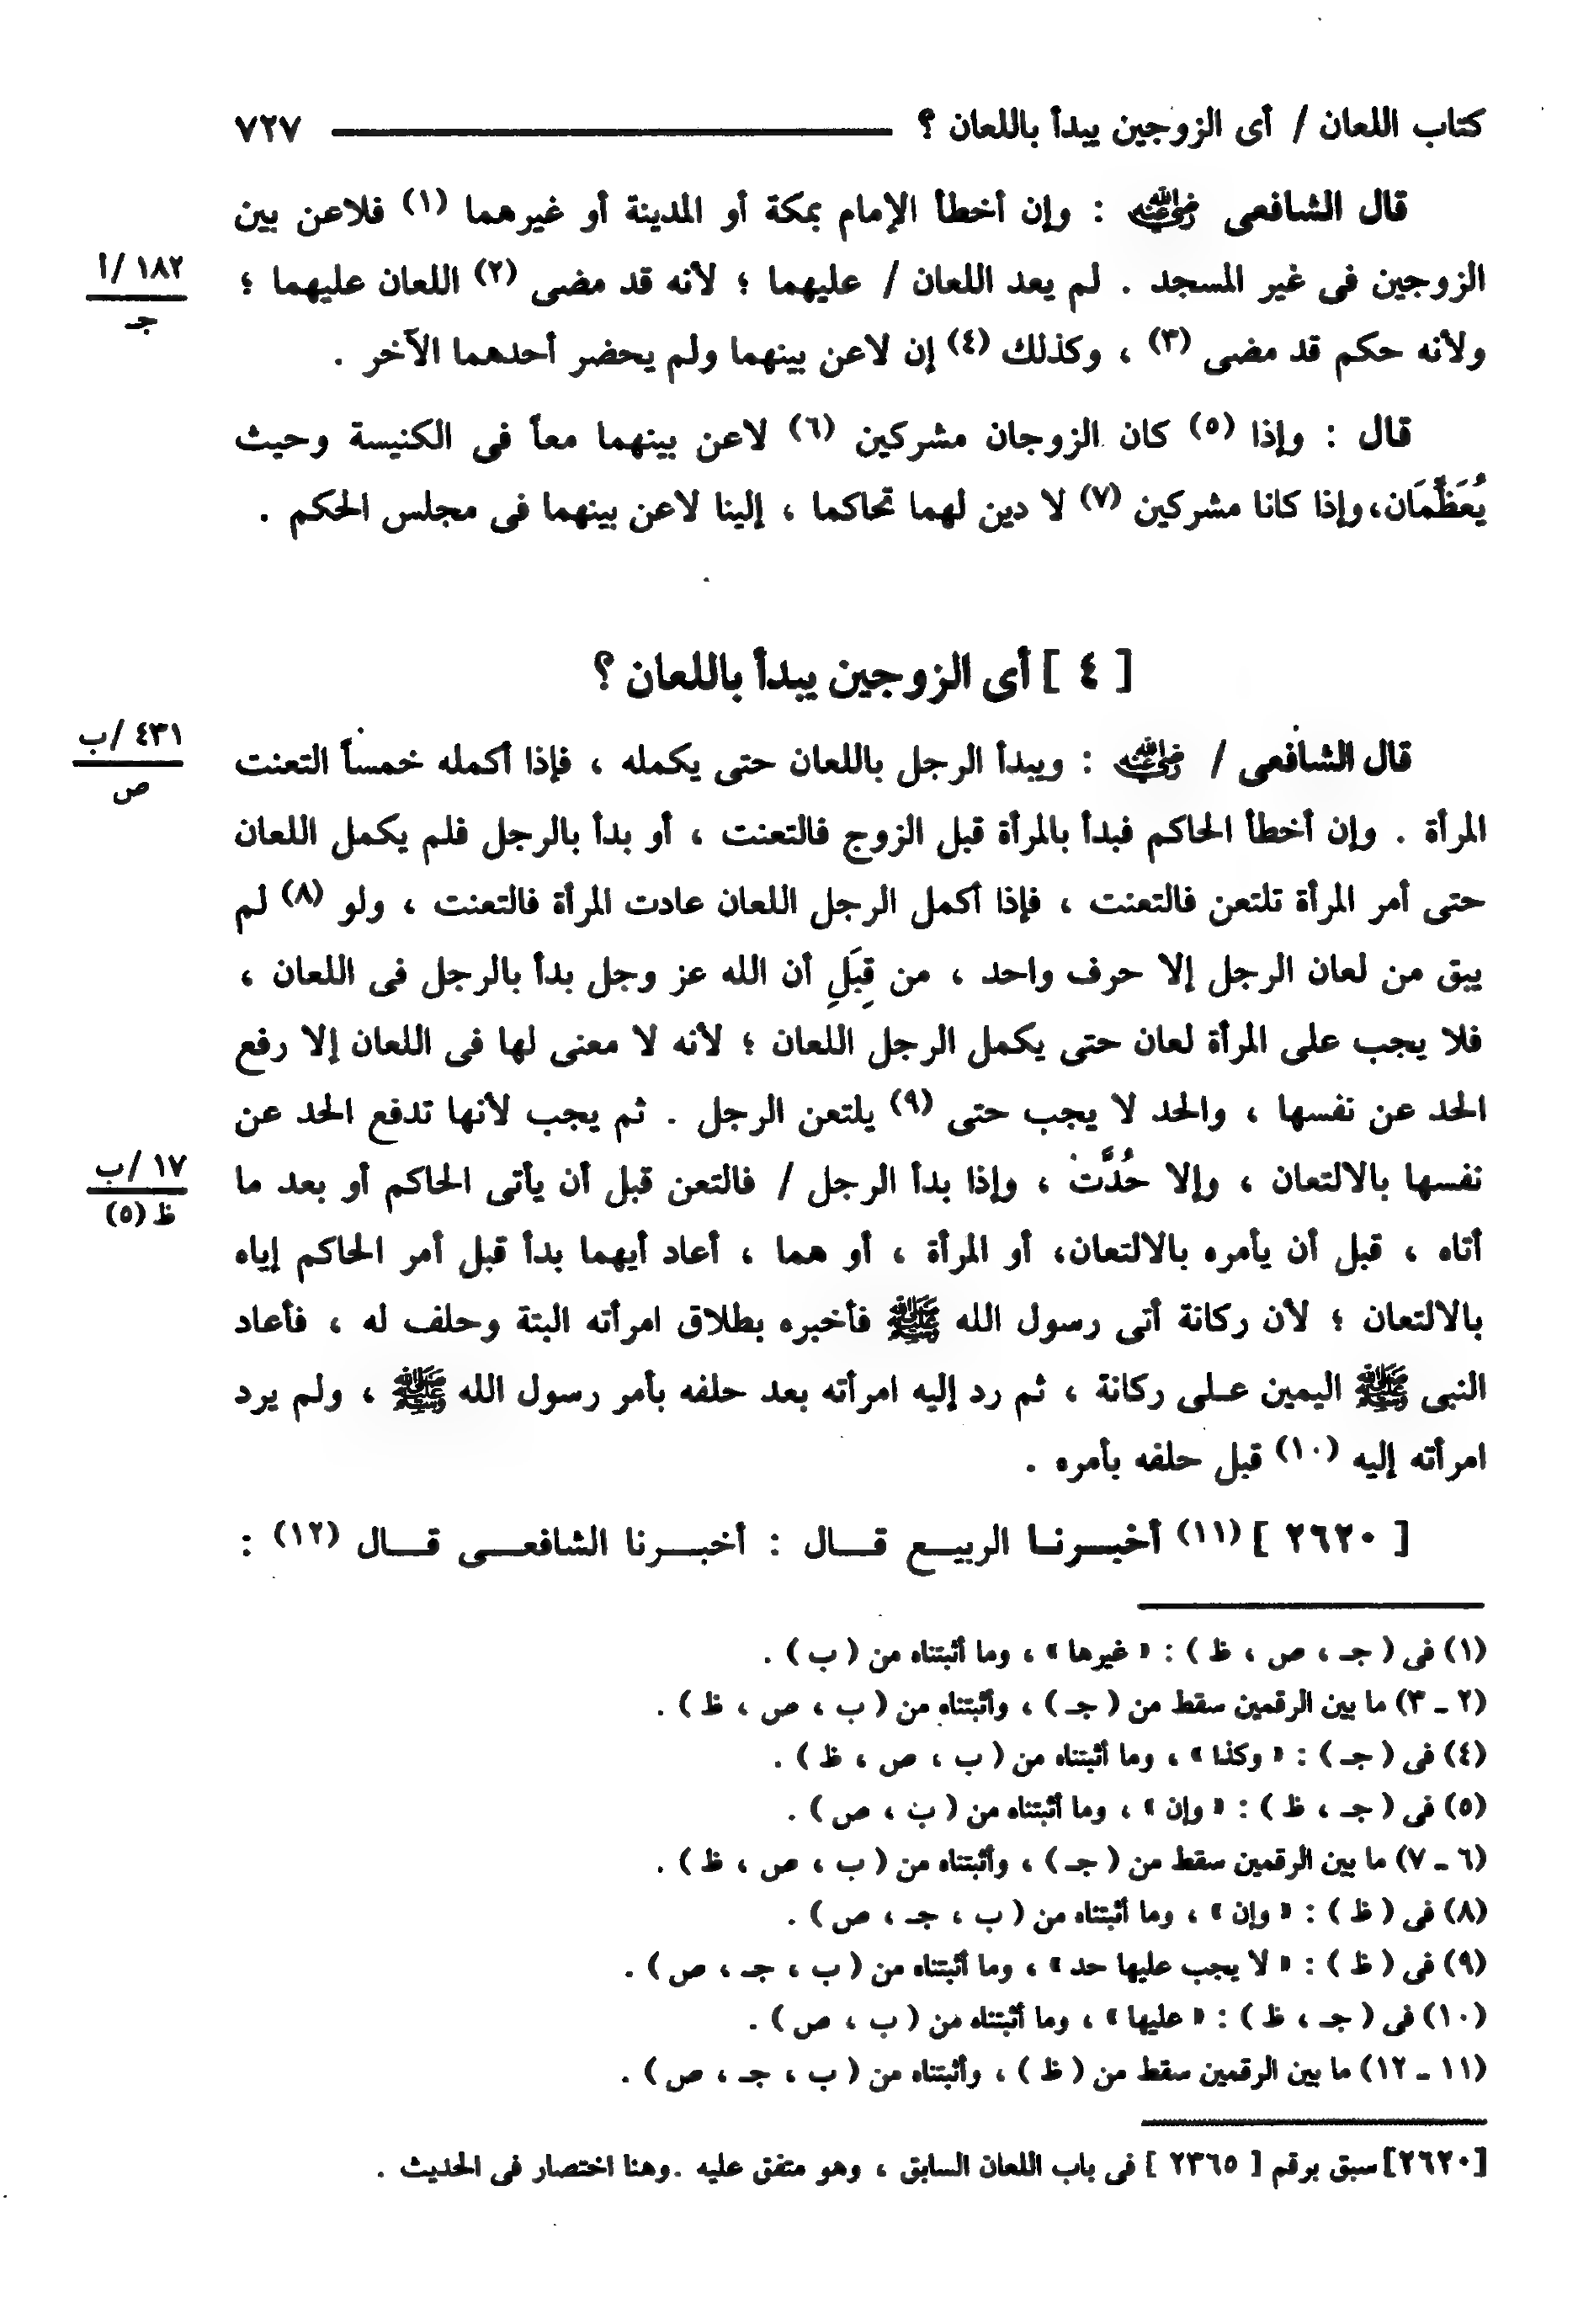 كتاب اللعان / أى الزوجين يبدأ باللعان ؟ ٧٢٧
قال الشافعى رضي الله عنه : وإن أخطأ الإمام بمكة أو المدينة أو غيرهما (١) فلاعن بين
الزوجين فى غير المسجد . لم يعد اللعان / عليهما ؛ لأنه قد مضى (٢) اللعان عليهما ؛
١٨٢ /أ
جـ
ولأنه حكم قد مضى (٣) ، وكذلك (٤) إن لاعن بينهما ولم يحضر أحدهما الآخر .
قال : وإذا (٥) كان الزوجان مشركين (٦) لاعن بينهما معاً فى الكنيسة وحيث
يُعَظِّمَان،وإذا كانا مشركين (٧) لا دين لهما تحاكما ، إلينا لاعن بينهما فى مجلس الحكم .
[ ٤ ] أى الزوجين يبدأ باللعان ؟
قال الشافعى / رضي الله عنه : ويبدأ الرجل باللعان حتى يكمله ، فإذا أكمله خمساً التعنت
٤٣١ /ب
ص
المرأة . وإن أخطأ الحاكم فبدأ بالمرأة قبل الزوج فالتعنت ، أو بدأ بالرجل فلم يكمل اللعان
حتى أمر المرأة تلتعن فالتعنت ، فإذا أكمل الرجل اللعان عادت المرأة فالتعنت ، ولو (٨) لم
يبق من لعان الرجل إلا حرف واحد ، من قِبَلِ أن الله عز وجل بدأ بالرجل فى اللعان ،
فلا يجب على المرأة لعان حتى يكمل الرجل اللعان ؛ لأنه لا معنى لها فى اللعان إلا رفع
الحد عن نفسها ، والحد لا يجب حتى (٩) يلتعن الرجل . ثم يجب لأنها تدفع الحد عن
نفسها بالالتعان ، وإلا حُدَّت ، وإذا بدأ الرجل / فالتعن قبل أن يأتى الحاكم أو بعد ما
١٧ /ب
ظ (٥)
أتاه ، قبل أن يأمره بالالتعان، أو المرأة ، أو هما ، أعاد أيهما بدأ قبل أمر الحاكم إياه
بالالتعان ؛ لأن ركانة أتى رسول الله ﷺ فأخبره بطلاق امرأته البتة وحلف له ، فأعاد
النبى ﷺ اليمين عـلى ركانة ، ثم رد إليه امرأته بعد حلفه بأمر رسول الله ﷺ ، ولم يرد
امرأته إليه (١٠) قبل حلفه بأمره .
[ ٢٦٢٠ ] (١١) أخبـــرنــا الربيــع قــــال : أخبــــرنا الشافعــــى قــــال (١٢) :
(١) فى ( جـ ، ص ، ظ ) : « غيرها » ، وما أثبتناه من ( ب ) .
(٢ ـ ٣) ما بين الرقمين سقط من ( جـ ) ، وأثبتناه من ( ب ، ص ، ظ ) .
(٤) فى ( جـ ) : « وكذا » ، وما أثبتناه من ( ب ، ص ، ظ ) .
(٥) فى ( جـ ، ظ ) : « وإن » ، وما أثبتناه من ( ب ، ص ) .
(٦ ـ ٧) ما بين الرقمين سقط من ( جـ ) ، وأثبتناه من ( ب ، ص ، ظ ) .
(٨) فى ( ظ ) : « وإن » ، وما أثبتناه من ( ب ، جـ ، ص ) .
(٩) فى ( ظ ) : « لا يجب عليها حد » ، وما أثبتناه من ( ب ، جـ ، ص ) .
(١٠) فى ( جـ ، ظ ) : « عليها » ، وما أثبتناه من ( ب ، ص ) .
(١١ ـ ١٢) ما بين الرقمين سقط من ( ظ ) ، وأثبتناه من ( ب ، جـ ، ص ) .
[٢٦٢٠] سبق برقم [ ٢٣٦٥ ] فى باب اللعان السابق ، وهو متفق عليه .وهنا اختصار فى الحديث .